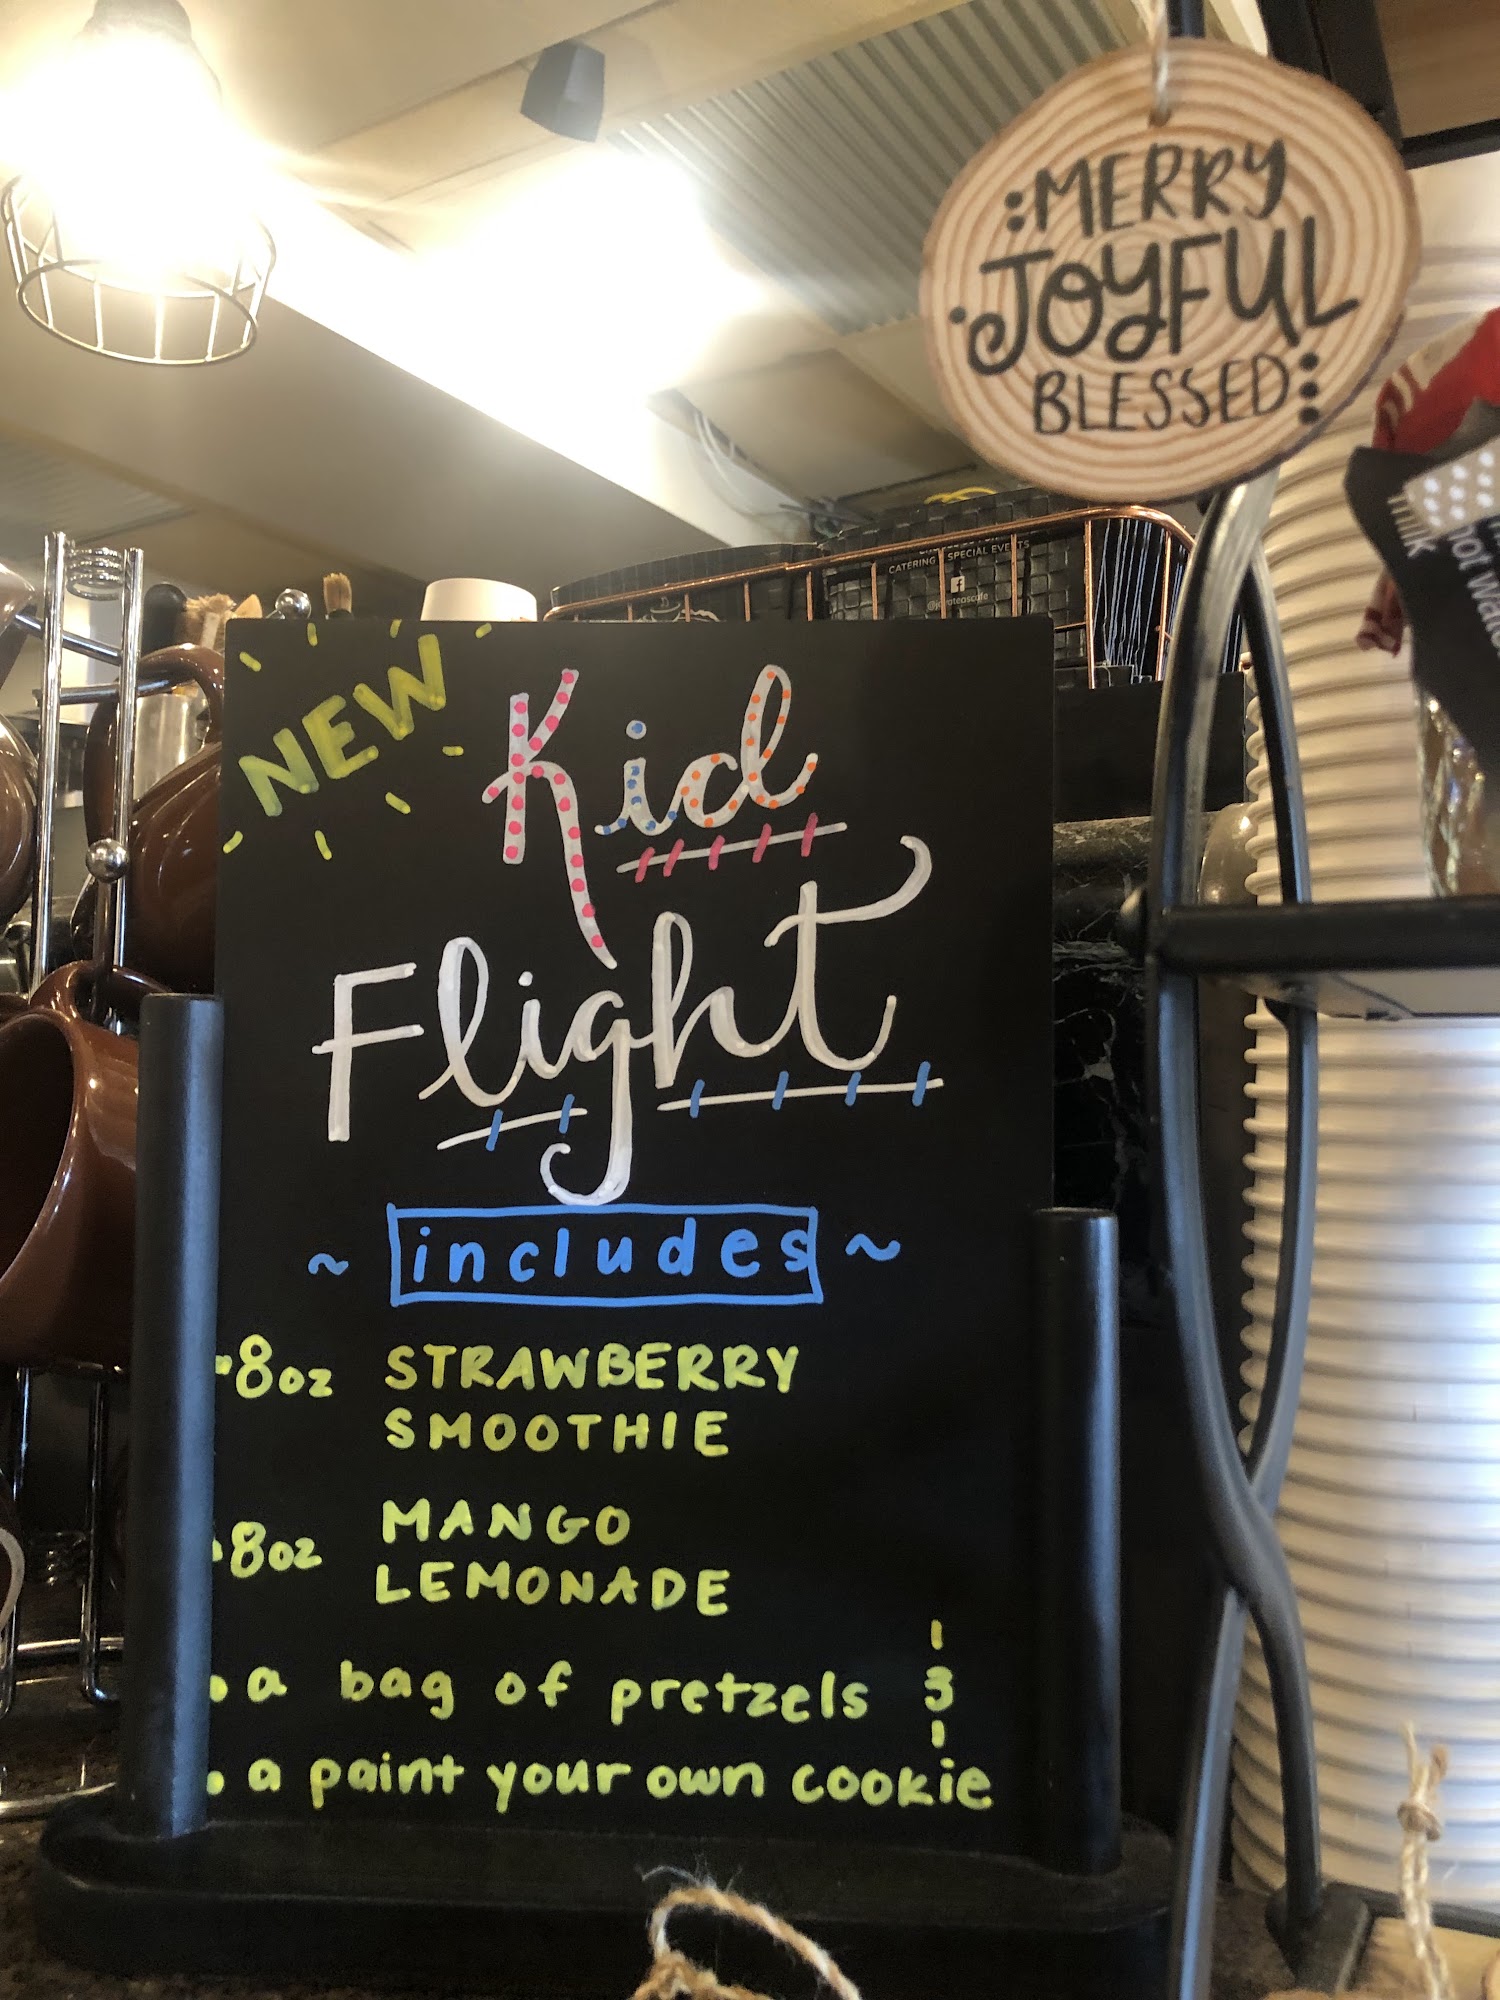 MERRY
JOYFUL
BLESSED
CATERING SPECIAL EVENTS
milk
NEW
Kid
Flight
~ includes ~
•8oz STRAWBERRY
SMOOTHIE
•8oz MANGO
LEMONADE
• a bag of pretzels 3
• a paint your own cookie